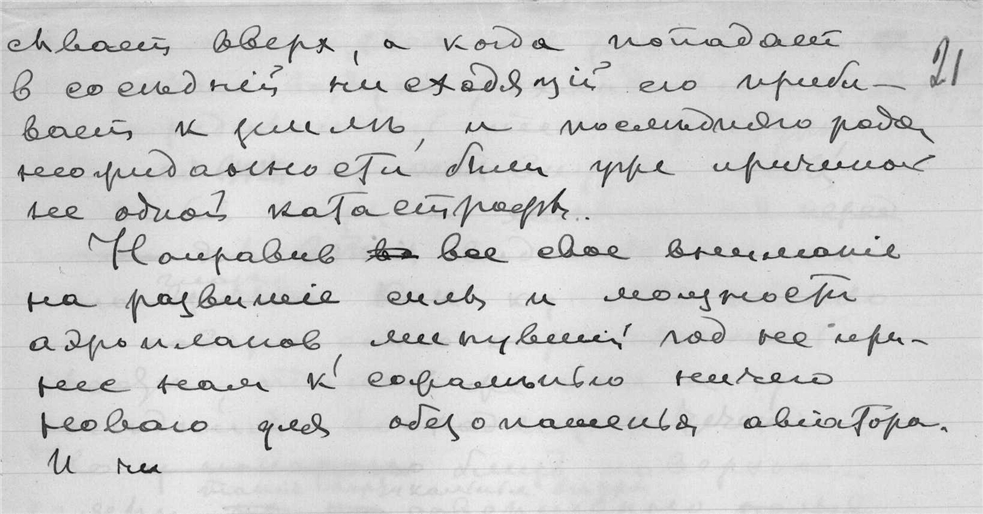 сываетъ вверх, а когда попадает
в сосѣдней нисходящій его приби-
21
вает к землѣ, и послѣдняго рода,
неожиданности были уже причиной
не одной катастрофы.
Направив все свое вниманіе
на развитіе силы и мощности
аэропланов, минувшій год не при-
нес нам к сожалѣнію ничего
новаго для обезопашенья авіатора.
И чи